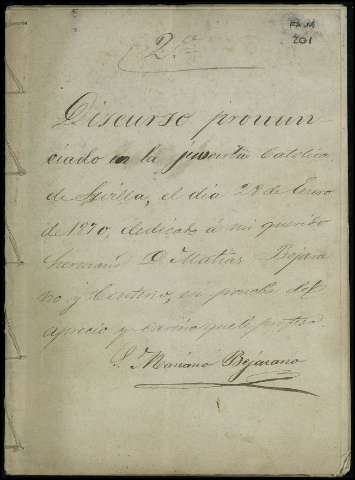 FA M
201
2º
Discurso pronun-
ciado en la juventud Católica
de Sevilla, el día 28 de Enero
de 1870, dedicado á mi querido
hermano D Matias Bejara
no y Centeno, en prueba del
aprecio y cariño que le profesa
Mariano Bejarano